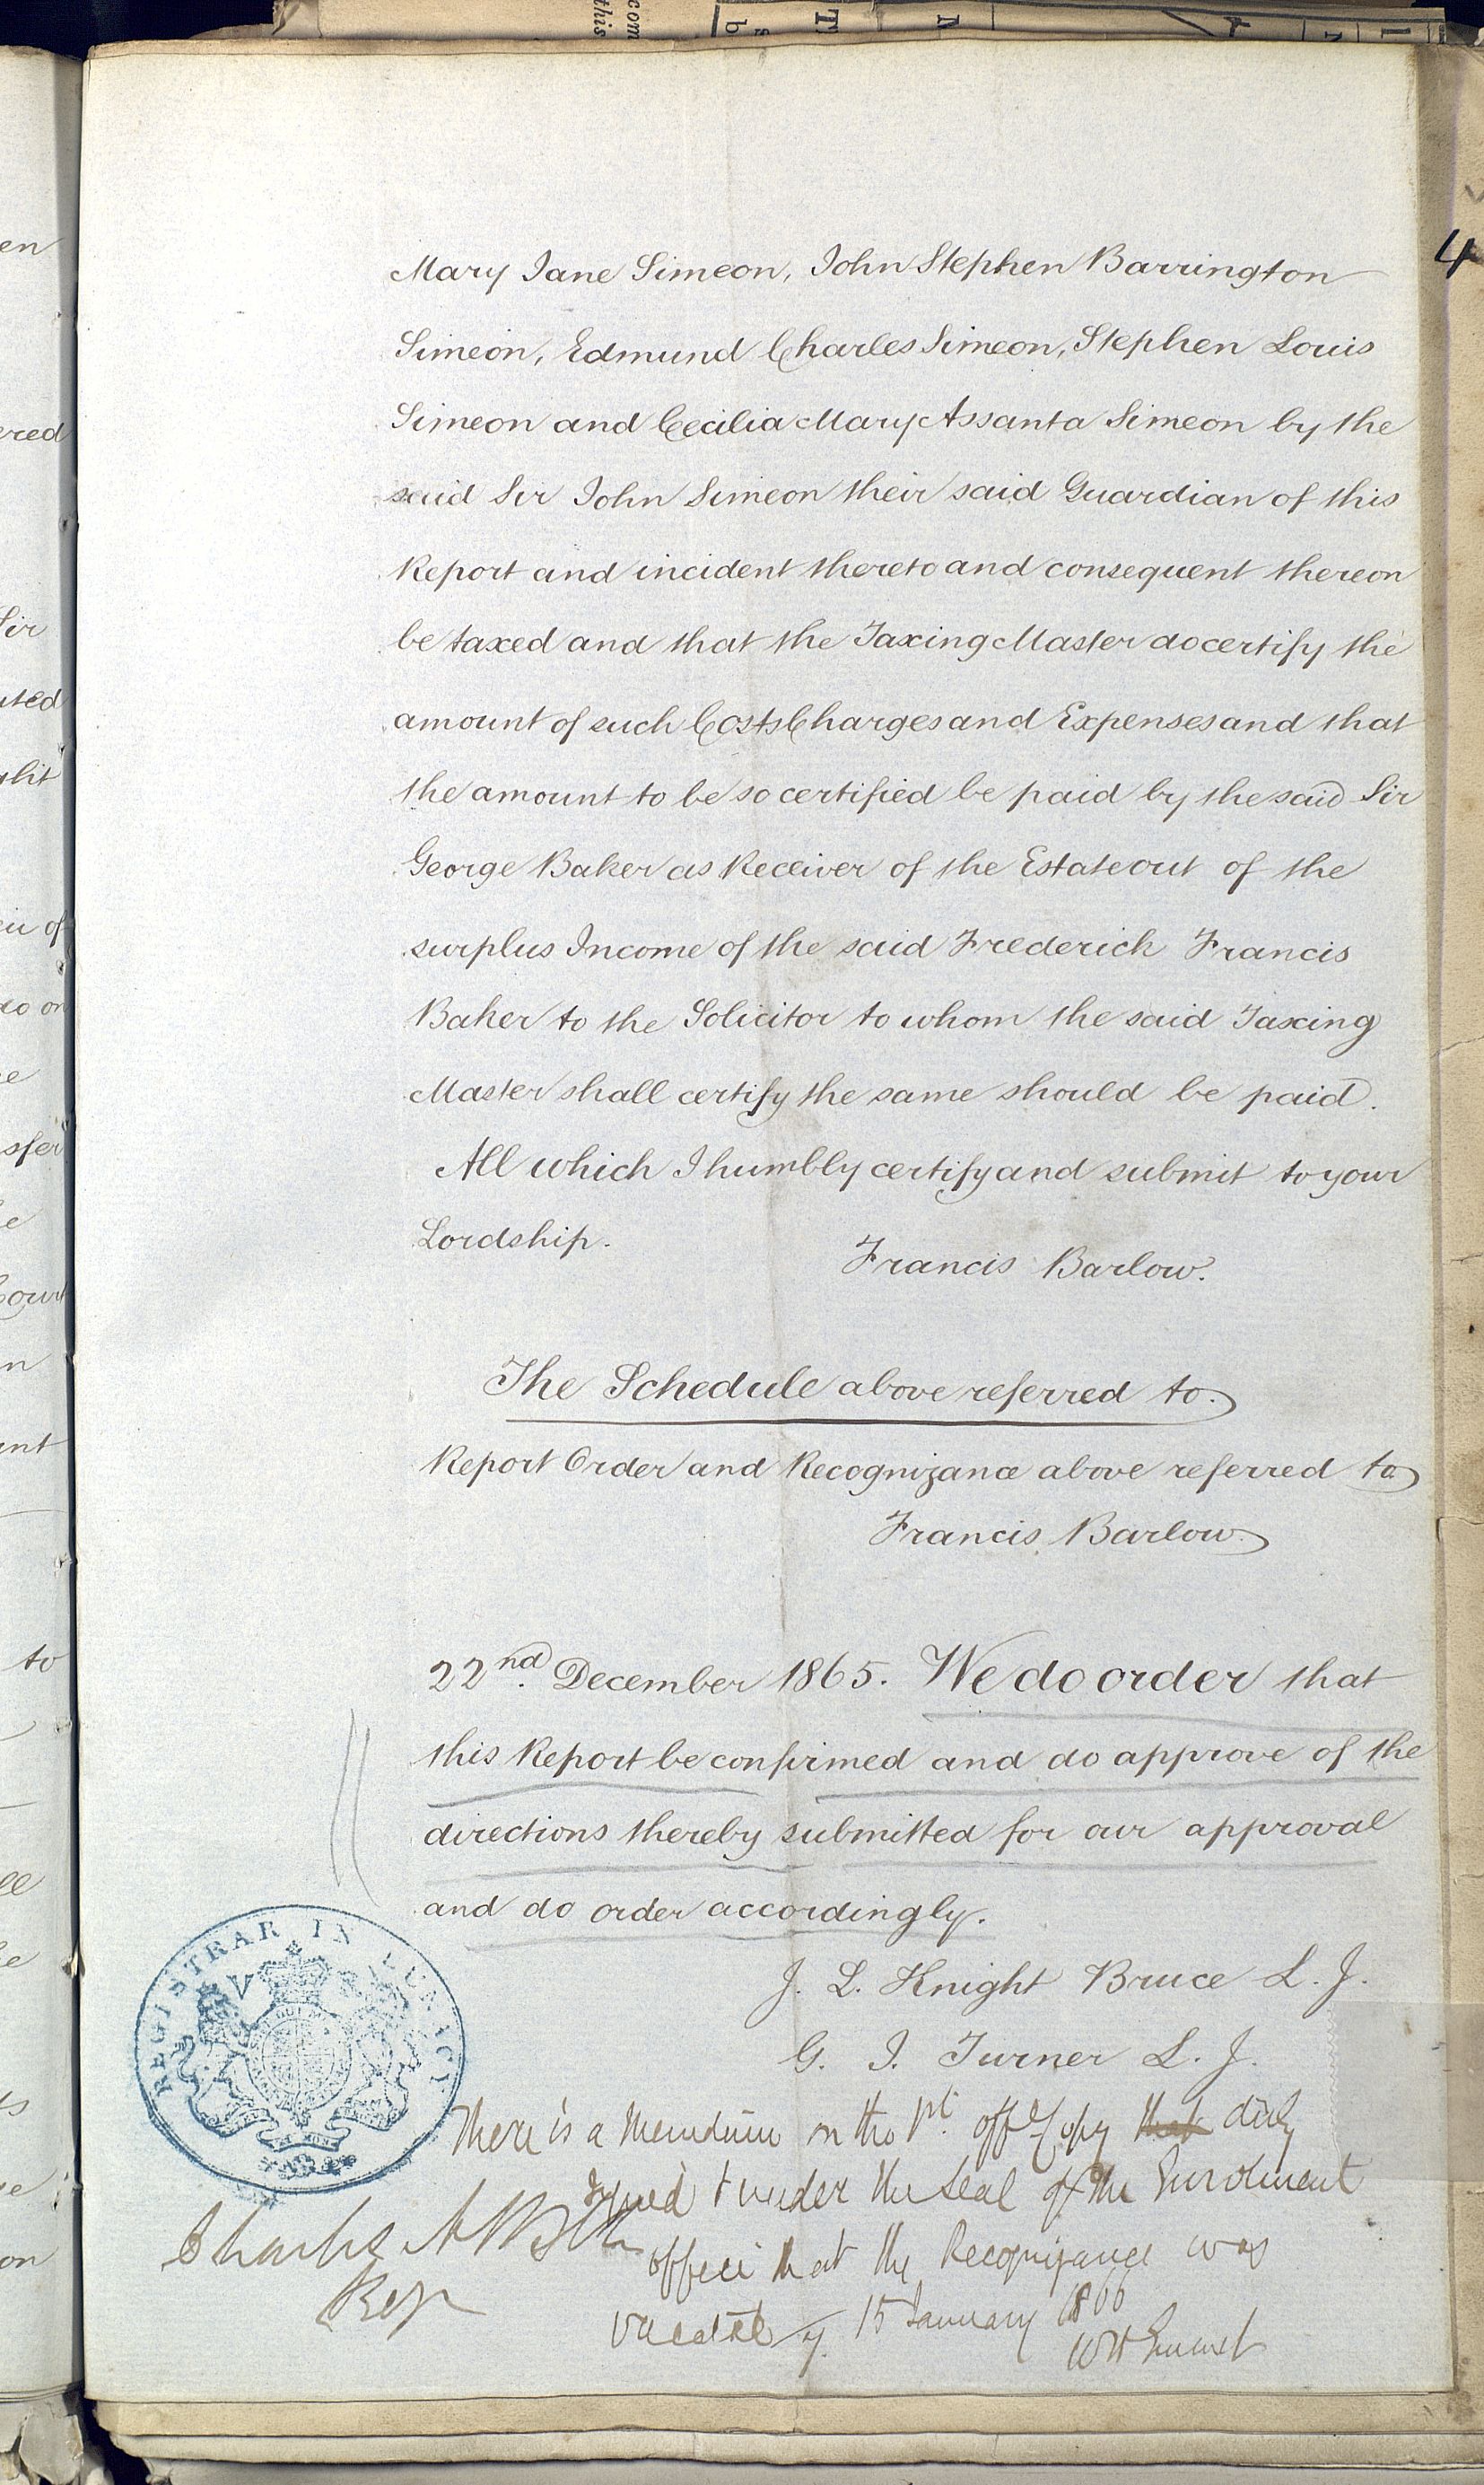 4
Mary Jane Simeon, John Stephen Barrington
Simeon, Edmund Charles Simeon, Stephen Louis
Simeon and Cecilia Mary Assanta Simeon by the
said Sir John Simeon their said Guardian of this
Report and incident thereto and consequent thereon
be taxed and that the Taxing Master do certify the
amount of such Costs Charges and Expenses and that
the amount to be so certified be paid by the said Sir
George Baker as Receiver of the Estate out of the
surplus Income of the said Frederick Francis
Baker to the Solicitor to whom the said Taxing
Master shall certify the same should be paid.
All which I humbly certify and submit to your
Lordship.
Francis Barlow.
The Schedule above referred to.
Report Order and Recognizance above referred to
Francis Barlow.
22nd. December 1865. We do order that
this Report be confirmed and do approve of the
directions thereby submitted for our approval
and do order accordingly.
J. L. Knight Bruce L. J.
G. J. Turner L. J.
REGISTRAR IN LUNACY
V R
There is a on the Copy that duly
signed & under the Seal of the Enrolment
office that the Recognizance was
vacated 15 January 1866
Charles